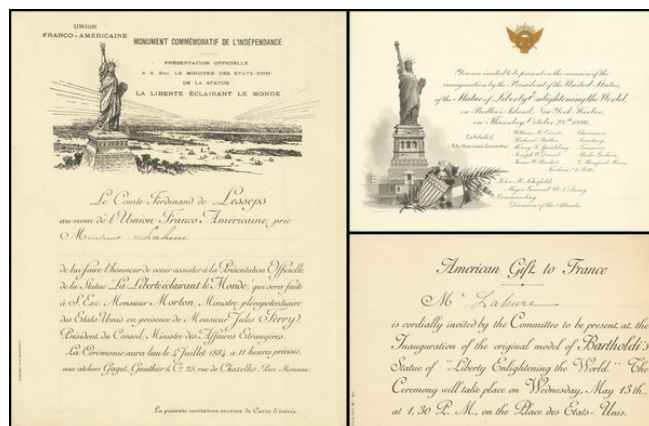 UNION
FRANCO-AMÉRICAINE
MONUMENT COMMÉMORATIF DE L'INDÉPENDANCE
PRÉSENTATION OFFICIELLE
A S. EXC. LE MINISTRE DES ETATS-UNIS
DE LA STATUE
LA LIBERTÉ ÉCLAIRANT LE MONDE
Le Comte Ferdinand de Lesseps
au nom de l'Union Franco-Américaine, prie
Monsieur Lahure
de lui faire l'honneur de venir assister à la Présentation Officielle
de la Statue "La Liberté éclairant le Monde", qui sera faite
à S. Exc. Monsieur Morton, Ministre plénipotentiaire
des Etats Unis en présence de Monsieur Jules Ferry,
Président du Conseil, Ministre des Affaires Etrangères.
La Cérémonie aura lieu le 4 Juillet 1884, à 11 heures précises,
aux ateliers Gaget, Gauthier & Cie 25, rue de Chazelles, Parc Monceau.
La présente invitation servira de Carte d'entrée.
You are invited to be present on the occasion of the
inauguration by the President of the United States,
of the Statue of Liberty Enlightening the World,
on Bedloe's Island, New York Harbor,
on Thursday, October 28th 1886.
On behalf of
The American Committee
William M. Evarts, Chairman
Richard Butler, Secretary
Henry F. Spaulding, Treasurer
Joseph W. Drexel, Parke Godwin,
James W. Pinchot, V. Mumford Moore,
Frederic A. Potts.
John M. Schofield,
Major General U.S. Army
Commanding
Division of the Atlantic
American Gift to France
Mr Lahure
is cordially invited by the Committee to be present at the
Inauguration of the original model of Bartholdi's
Statue of "Liberty Enlightening the World." The
Ceremony will take place on Wednesday, May 13th.,
at 1,30 P. M., on the Place des Etats-Unis.